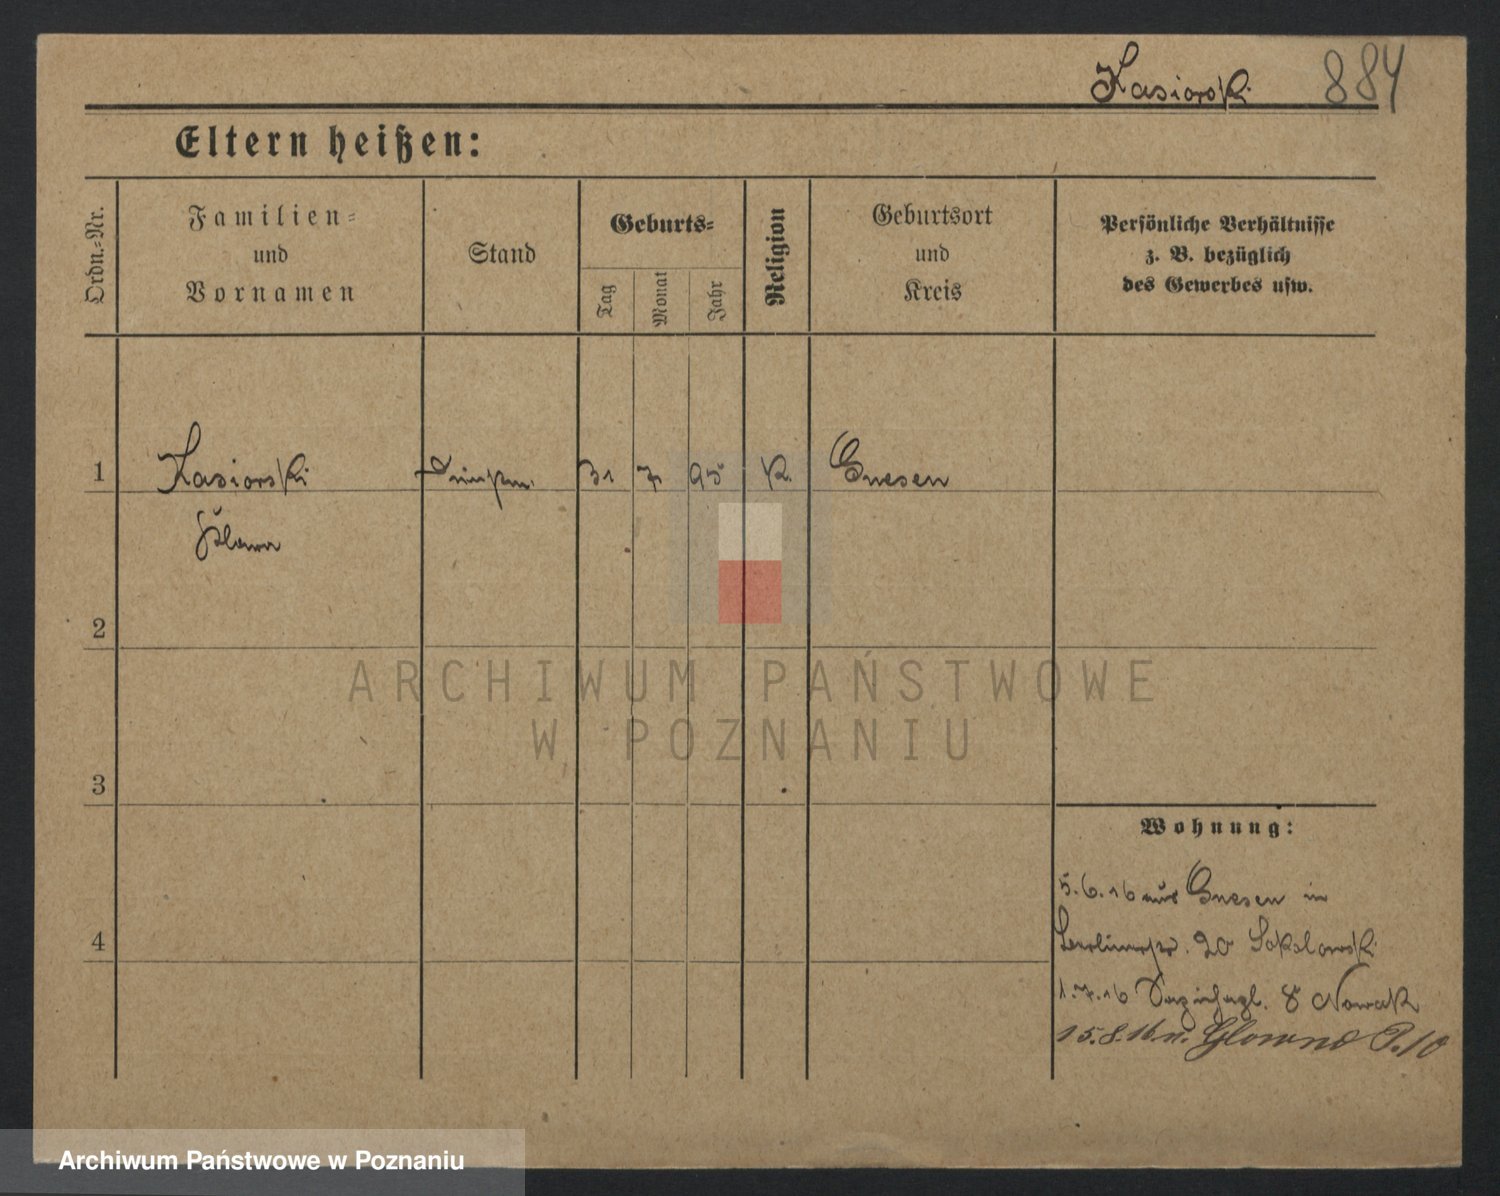 Kasiorski 884
Eltern heißen:
Ordn.=Nr.
Familien=
und
Vornamen
Stand
Geburts=
Tag
Monat
Jahr
Religion
Geburtsort
und
Kreis
Persönliche Verhältnisse
z. B. bezüglich
des Gewerbes usw.
1 Kasiorski 31 7 95 K. Gnesen
2
3
4
Wohnung:
5.6.16 aus Gnesen in
Berlinerstr. 20 Sokolowski
1.7.16 8 Nowak
15.8.16 n. Glowno P. 10
ARCHIWUM PAŃSTWOWE
W POZNANIU
Archiwum Państwowe w Poznaniu